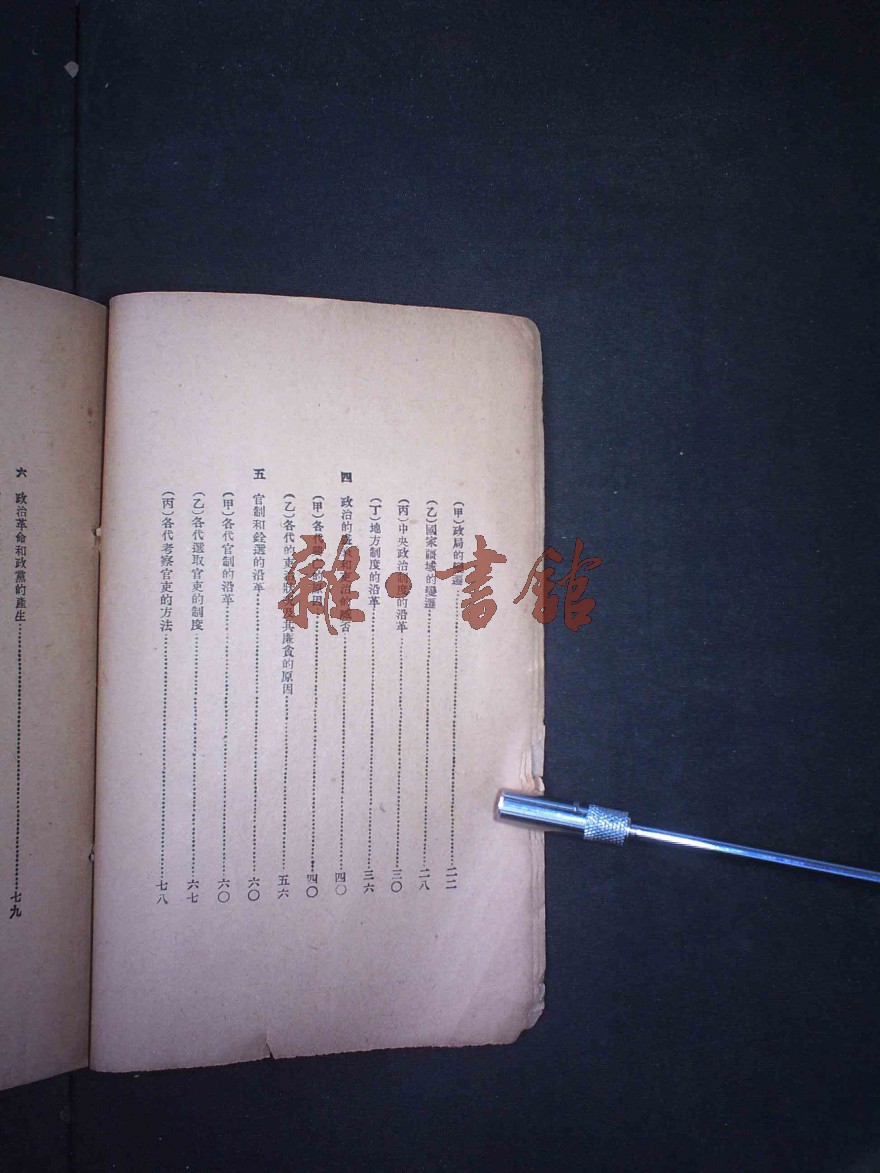 (甲)政局的變遷……二二
(乙)國家疆域的變遷……二八
(丙)中央政治制度的沿革……三〇
(丁)地方制度的沿革……三六
四 政治的和吏治的否……四〇
(甲)各代的原因……四〇
(乙)各代的吏治狀况及其廉貪的原因……五六
五 官制和銓選的沿革……六〇
(甲)各代官制的沿革……六〇
(乙)各代選取官吏的制度……六七
(丙)各代考察官吏的方法……七八
六 政治革命和政黨的產生……七九
雜·書館